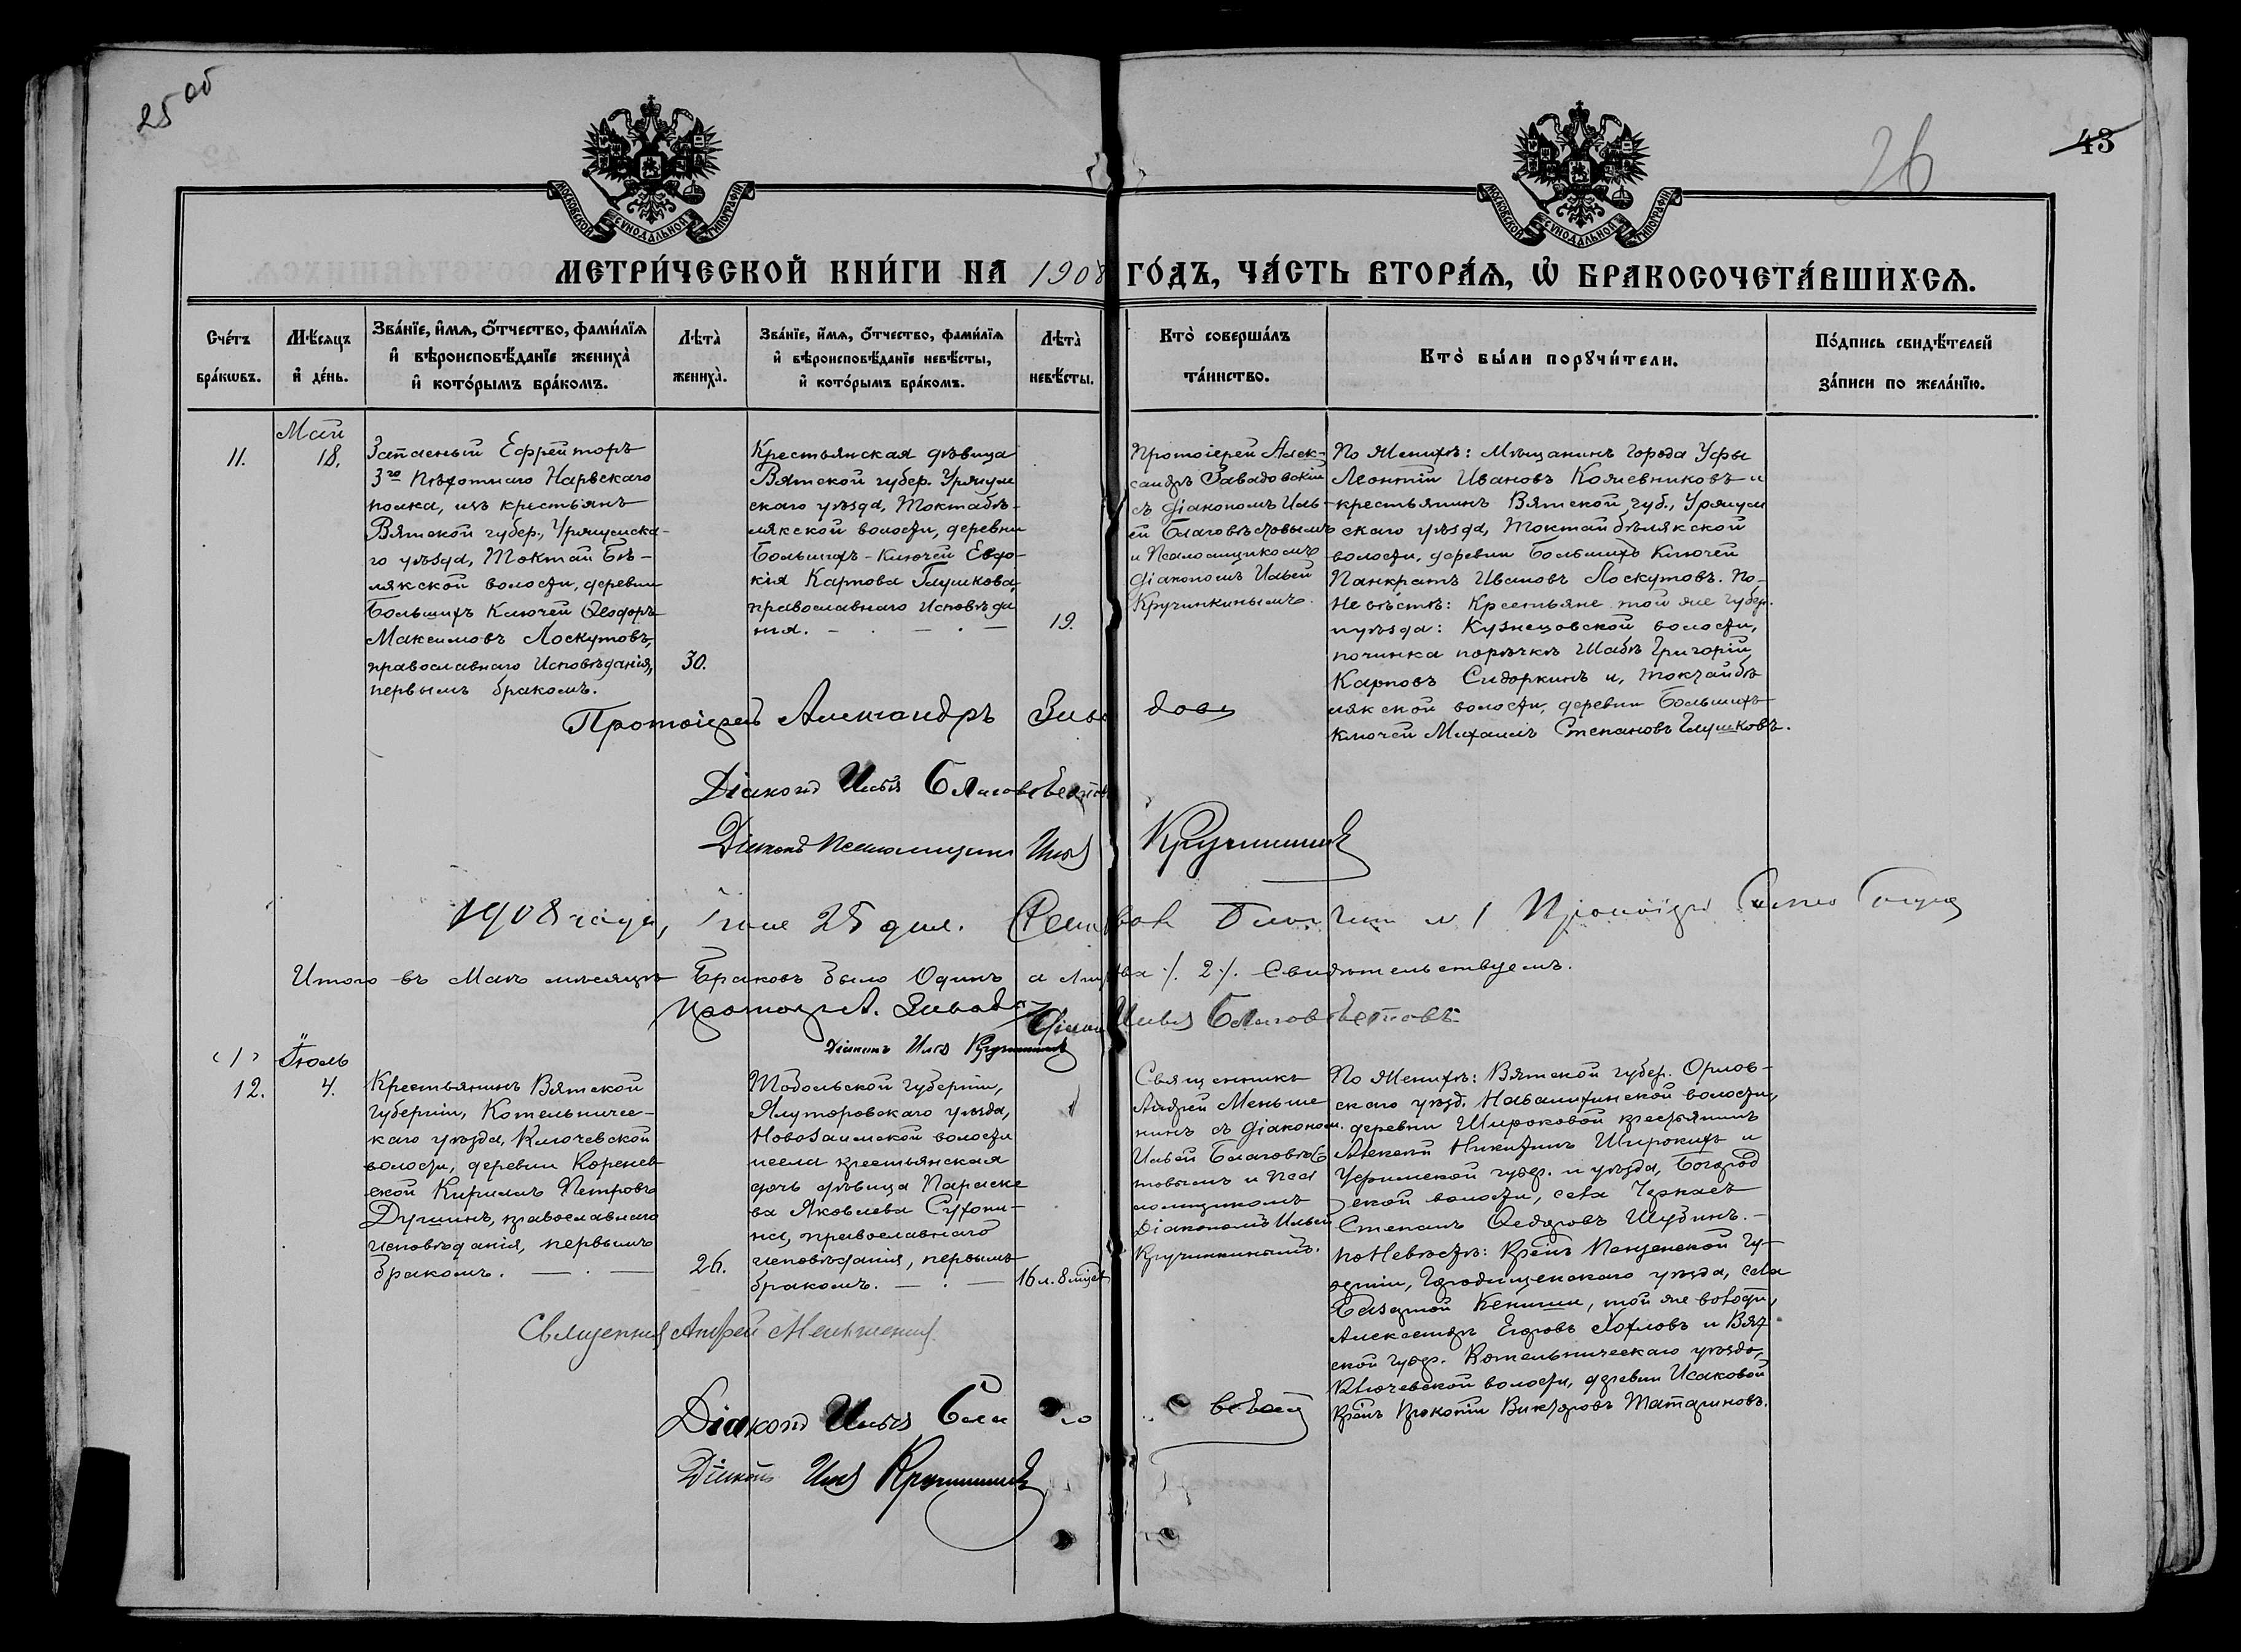 25 об
26
43
МОСКОВСКОЙ СѴНОДАЛЬНОЙ ТИПОГРАФІИ
МОСКОВСКОЙ СѴНОДАЛЬНОЙ ТИПОГРАФІИ
МЕТРИ́ЧЕСКОЙ КНИ́ГИ НА 1908 ГО́ДЪ, ЧА́СТЬ ВТОРА́Ѧ, Ѡ҆ БРАКОСОЧЕТА́ВШИХСѦ.
Сче́тъ
бра́кѡвъ.
Мѣ́сѧцъ
и҆ де́нь.
Зва́нїе, и҆́мѧ, ѻ҆́тчество, фами́лїѧ
и҆ вѣроисповѣ́данїе жениха̀
и҆ кото́рымъ бра́комъ.
Лѣта̀
жениха̀.
Зва́нїе, и҆́мѧ, ѻ҆́тчество, фами́лїѧ
и҆ вѣроисповѣ́данїе невѣ́сты,
и҆ кото́рымъ бра́комъ.
Лѣта̀
невѣ́сты.
Кто̀ соверша́лъ
та́инство.
Кто̀ бы́ли порꙋчи́тели.
По́дпись свидѣ́телей
за́писи по жела́нїю.
11.
Май
18.
Запасный Ефрейторъ
3го Пѣхотнаго Нарвскаго
полка, изъ крестьянъ
Вятской губер., Уржумска-
го уѣзда, Токтай Бѣ-
лякской волости, деревни
Большихъ Ключей Ѳеодоръ
Максимовъ Лоскутовъ,
православнаго Исповѣданія,
первымъ бракомъ.
30.
Крестьянская дѣвица
Вятской губер. Уржум
скаго уѣзда, Токтабѣ-
лякской волости, деревни
Большихъ-Ключей Евдо-
кія Карпова Глушкова,
православнаго Исповѣда
нія.
19.
Протоіерей Алек-
сандръ Завадовскій
съ діакономъ Иль-
ей Благовѣстовымъ
и Псаломщикомъ
Діакономъ Ильей
Кручинкинымъ.
По Женихѣ: Мѣщанинъ города Уфы
Леонтій Ивановъ Кожевниковъ и
крестьянинъ Вятской губ., Уржум
скаго уѣзда, Токтайбѣлякской
волости, деревни Большихъ Ключей
Панкратъ Ивановъ Лоскутовъ. По-
Невѣстѣ: Крестьяне той же губер.
и уѣзда: Кузнецовской волости,
починка порѣчкѣ Шабѣ Григорій
Карповъ Сидоркинъ и, Токтайбѣ
лякской волости, деревни Большихъ
Ключей Михаилъ Степановъ Глушковъ.
Протоіерей Александръ Завадов
Діаконъ Илья Благовѣстовъ
Діаконъ Псаломщикъ Илья Кручинкинъ
1908 года, 25 дня. № 1 Протоіерей
Итого въ Маѣ мѣсяцѣ Браковъ было Одинъ а лицъ ./. 2 ./. Свидѣтельствуемъ.
Протоіер. А. Завадов
Діаконъ Илья Благовѣстовъ
Діаконъ Илья Кручинкинъ
(1)
12.
Іюль
4.
Крестьянинъ Вятской
губерніи, Котельничес-
каго уѣзда, Ключевской
волости, деревни Коренев
ской Кириллъ Петровъ
православнаго
исповѣданія, первымъ
бракомъ.
26.
Тобольской губерніи,
Ялуторовскаго уѣзда,
Новозаимской волости
и села крестьянская
дочь дѣвица Параске
ва Яковлева Сухони-
на, православнаго
исповѣданія, первымъ
бракомъ.
16 л. 8 мѣс.
Священникъ
Андрей Меньше
нинъ съ діаконом.
Ильей Благовѣс
товымъ и Пса
ломщикомъ
Діакономъ Ильей
Кручинкинымъ.
По Женихѣ: Вятской губер. Орлов-
скаго уѣзд. волости,
деревни Широковой крестьянинъ
Алексѣй Никитинъ Широкихъ и
Уфимской губер. и уѣзда, Богород
ской волости, села Черкасъ
Степанъ Ѳедоровъ Шубинъ.
по Невѣстѣ: Кр-нъ Пензенской Гу-
берніи, Городищенскаго уѣзда, села
Базарной Кеньши, той же волости,
Александръ Егоровъ Хохловъ и Вят
ской губер. Котельническаго уѣзда,
Ключевской волости, деревни Исаковой
кр-нъ Прокопій Викторовъ Татариновъ.
Священникъ Андрей Меньшенинъ
Діаконъ Илья Благовѣстовъ
Діаконъ Илья Кручинкинъ